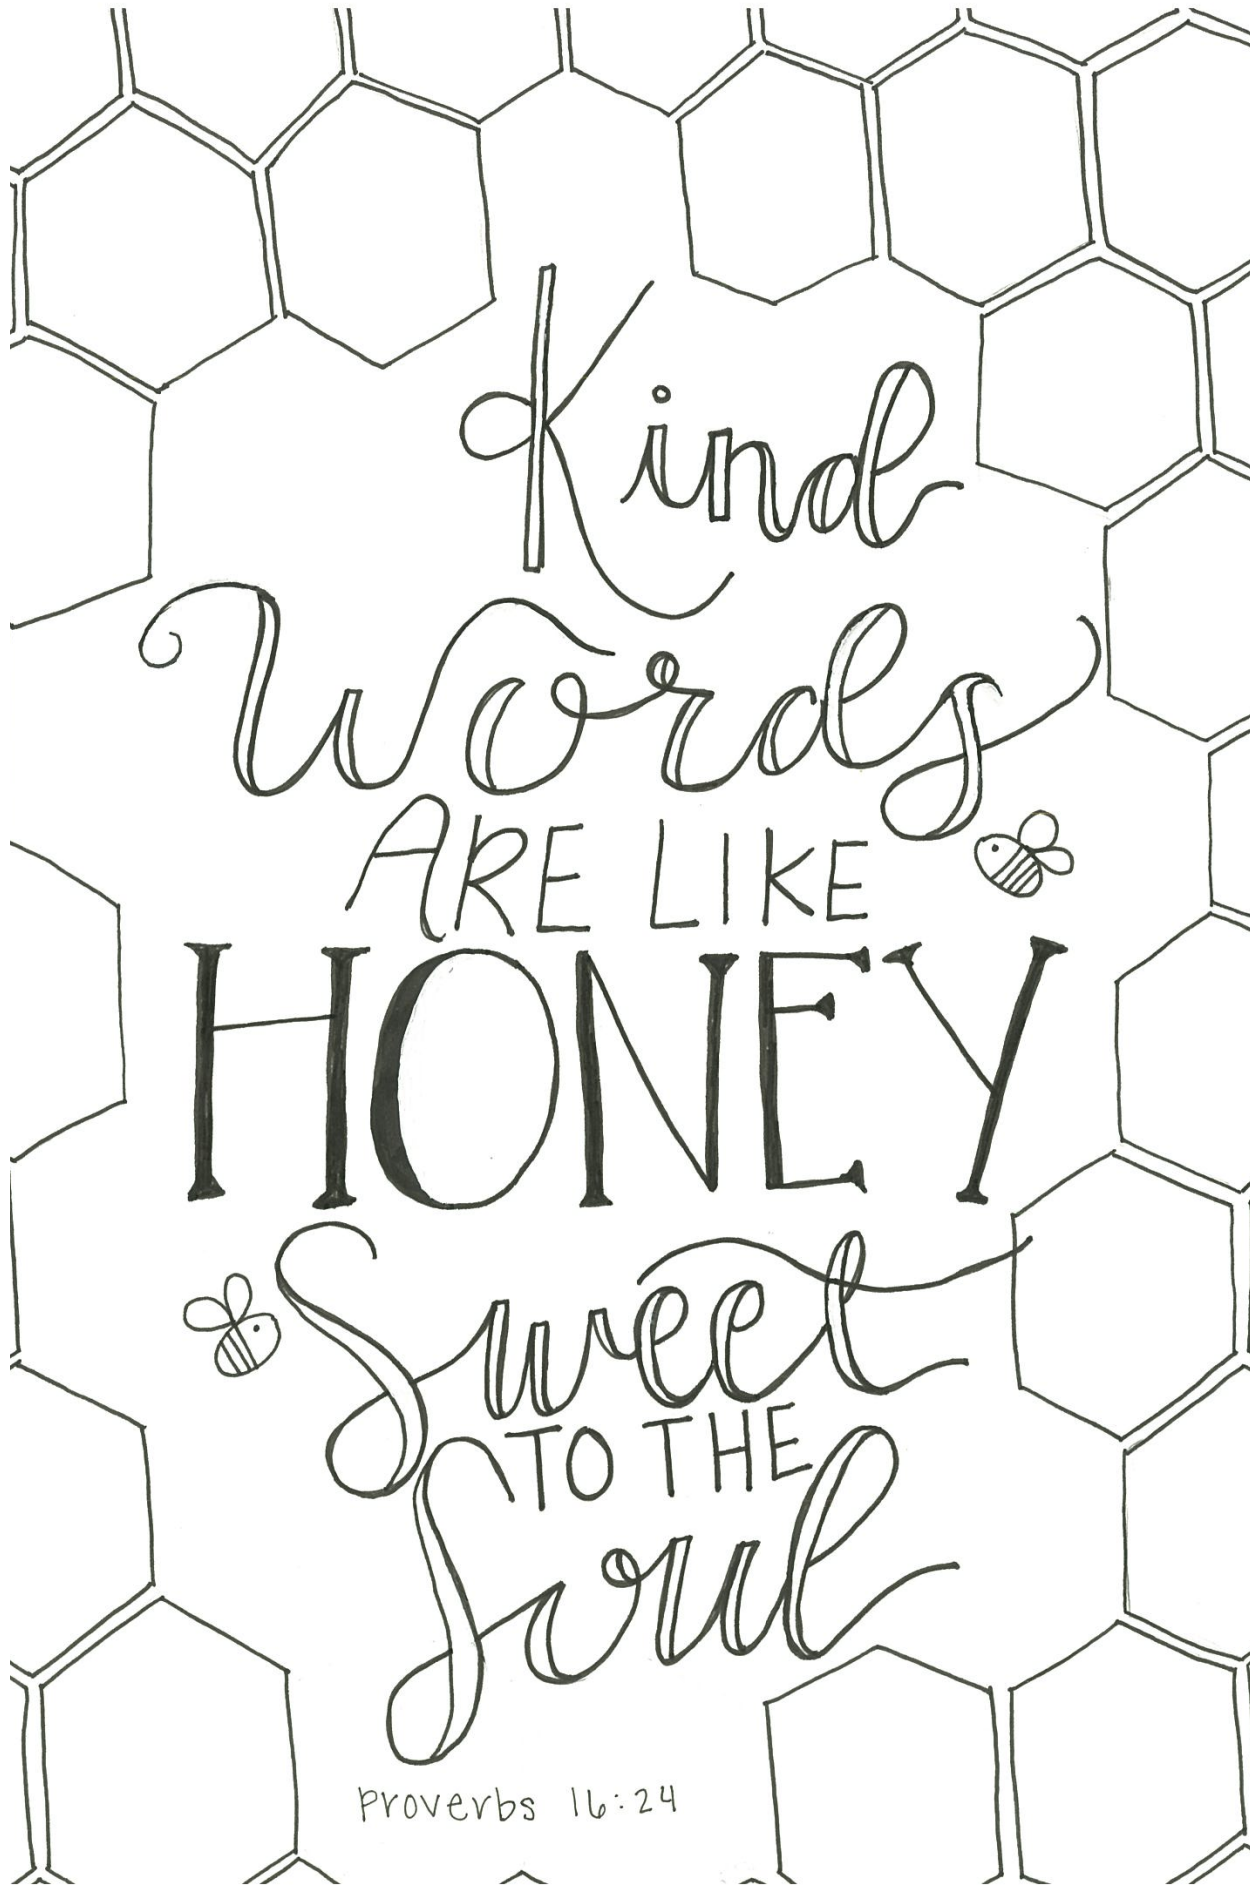 Kind
Words
ARE LIKE
HONEY
Sweet
TO THE
Soul
Proverbs 16:24